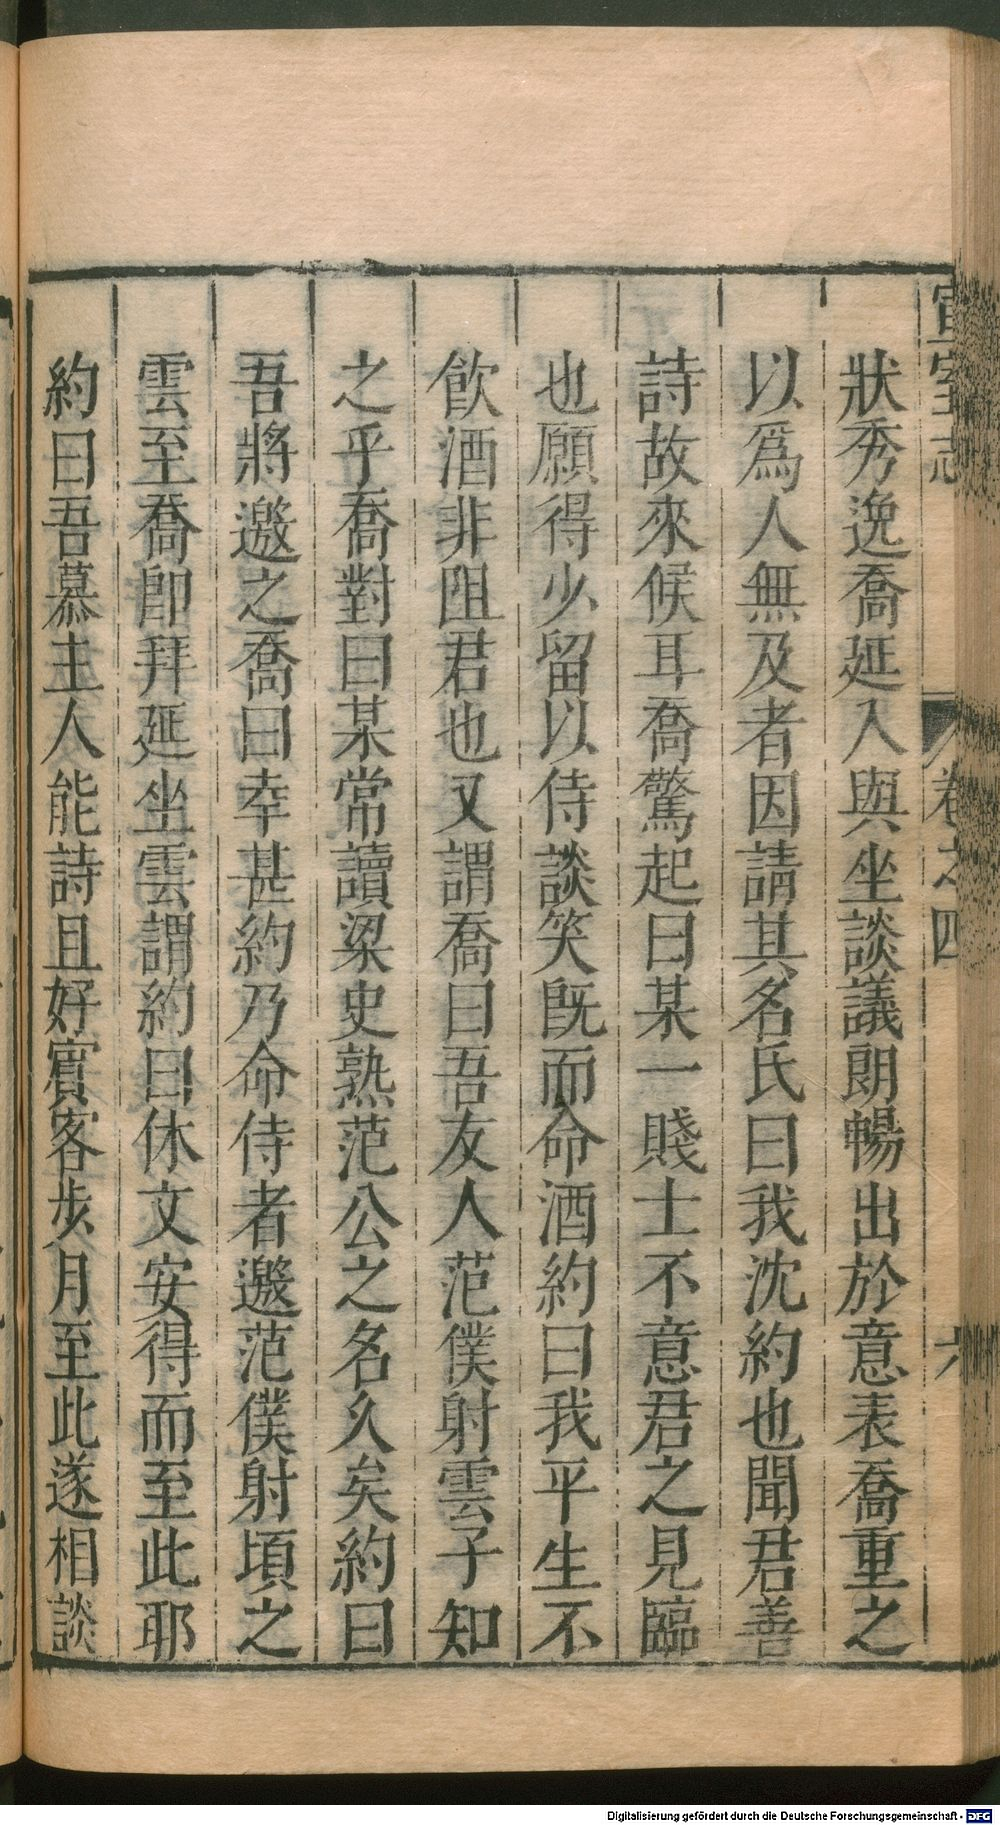 宣室志 卷之四 六
狀秀逸喬延入與坐談議朗暢出於意表喬重之
以爲人無及者因請其名氏曰我沈約也聞君善
詩故來候耳喬驚起曰某一賤士不意君之見臨
也願得少留以侍談笑既而命酒約曰我平生不
飮酒非阻君也又謂喬曰吾友人范僕射雲子知
之乎喬對曰某常讀梁史熟范公之名久矣約曰
吾將邀之喬曰幸甚約乃命侍者邀范僕射頃之
雲至喬卽拜延坐雲謂約曰休文安得而至此耶
約曰吾慕主人能詩且好賓客步月至此遂相談
Digitalisierung gefördert durch die Deutsche Forschungsgemeinschaft - DFG